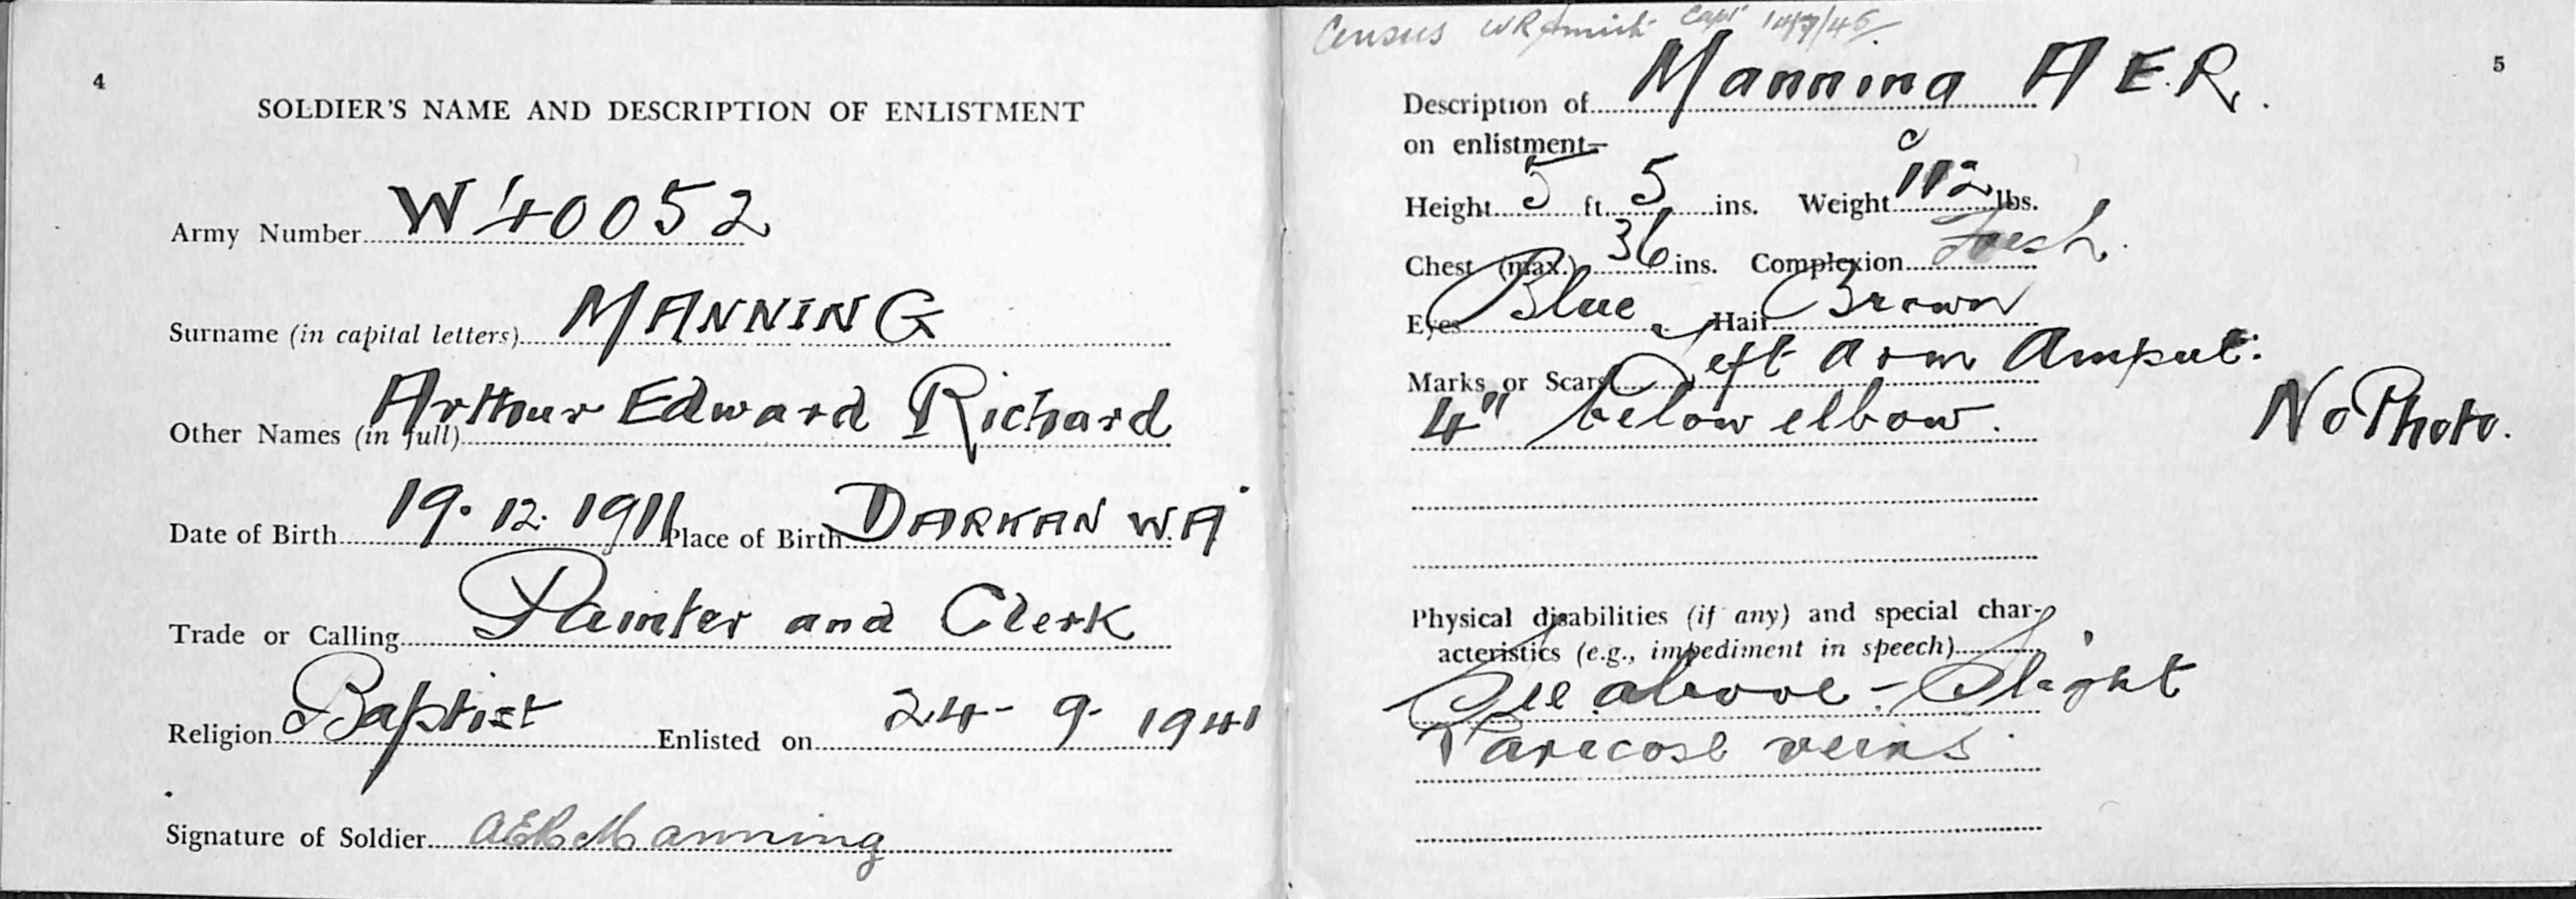 4
SOLDIER'S NAME AND DESCRIPTION OF ENLISTMENT
Army Number W40052
Surname (in capital letters) MANNING
Other Names (in full) Arthur Edward Richard
Date of Birth 19. 12. 1911 Place of Birth DARKAN W.A
Trade or Calling Painter and Clerk
Religion Baptist Enlisted on 24- 9- 1941
Signature of Soldier AERManning
Census WR Capt
5
Description of Manning A E.R.
on enlistment—
Height 5 ft. 5 ins. Weight 112 lbs.
Chest (max.) 36 ins. Complexion Fresh.
Eyes Blue Hair Brown
Marks or Scars Left arm Amput:
4" below elbow.
No Photo.
Physical disabilities (if any) and special char-
acteristics (e.g., impediment in speech)
See above - Slight
Varicose veins.